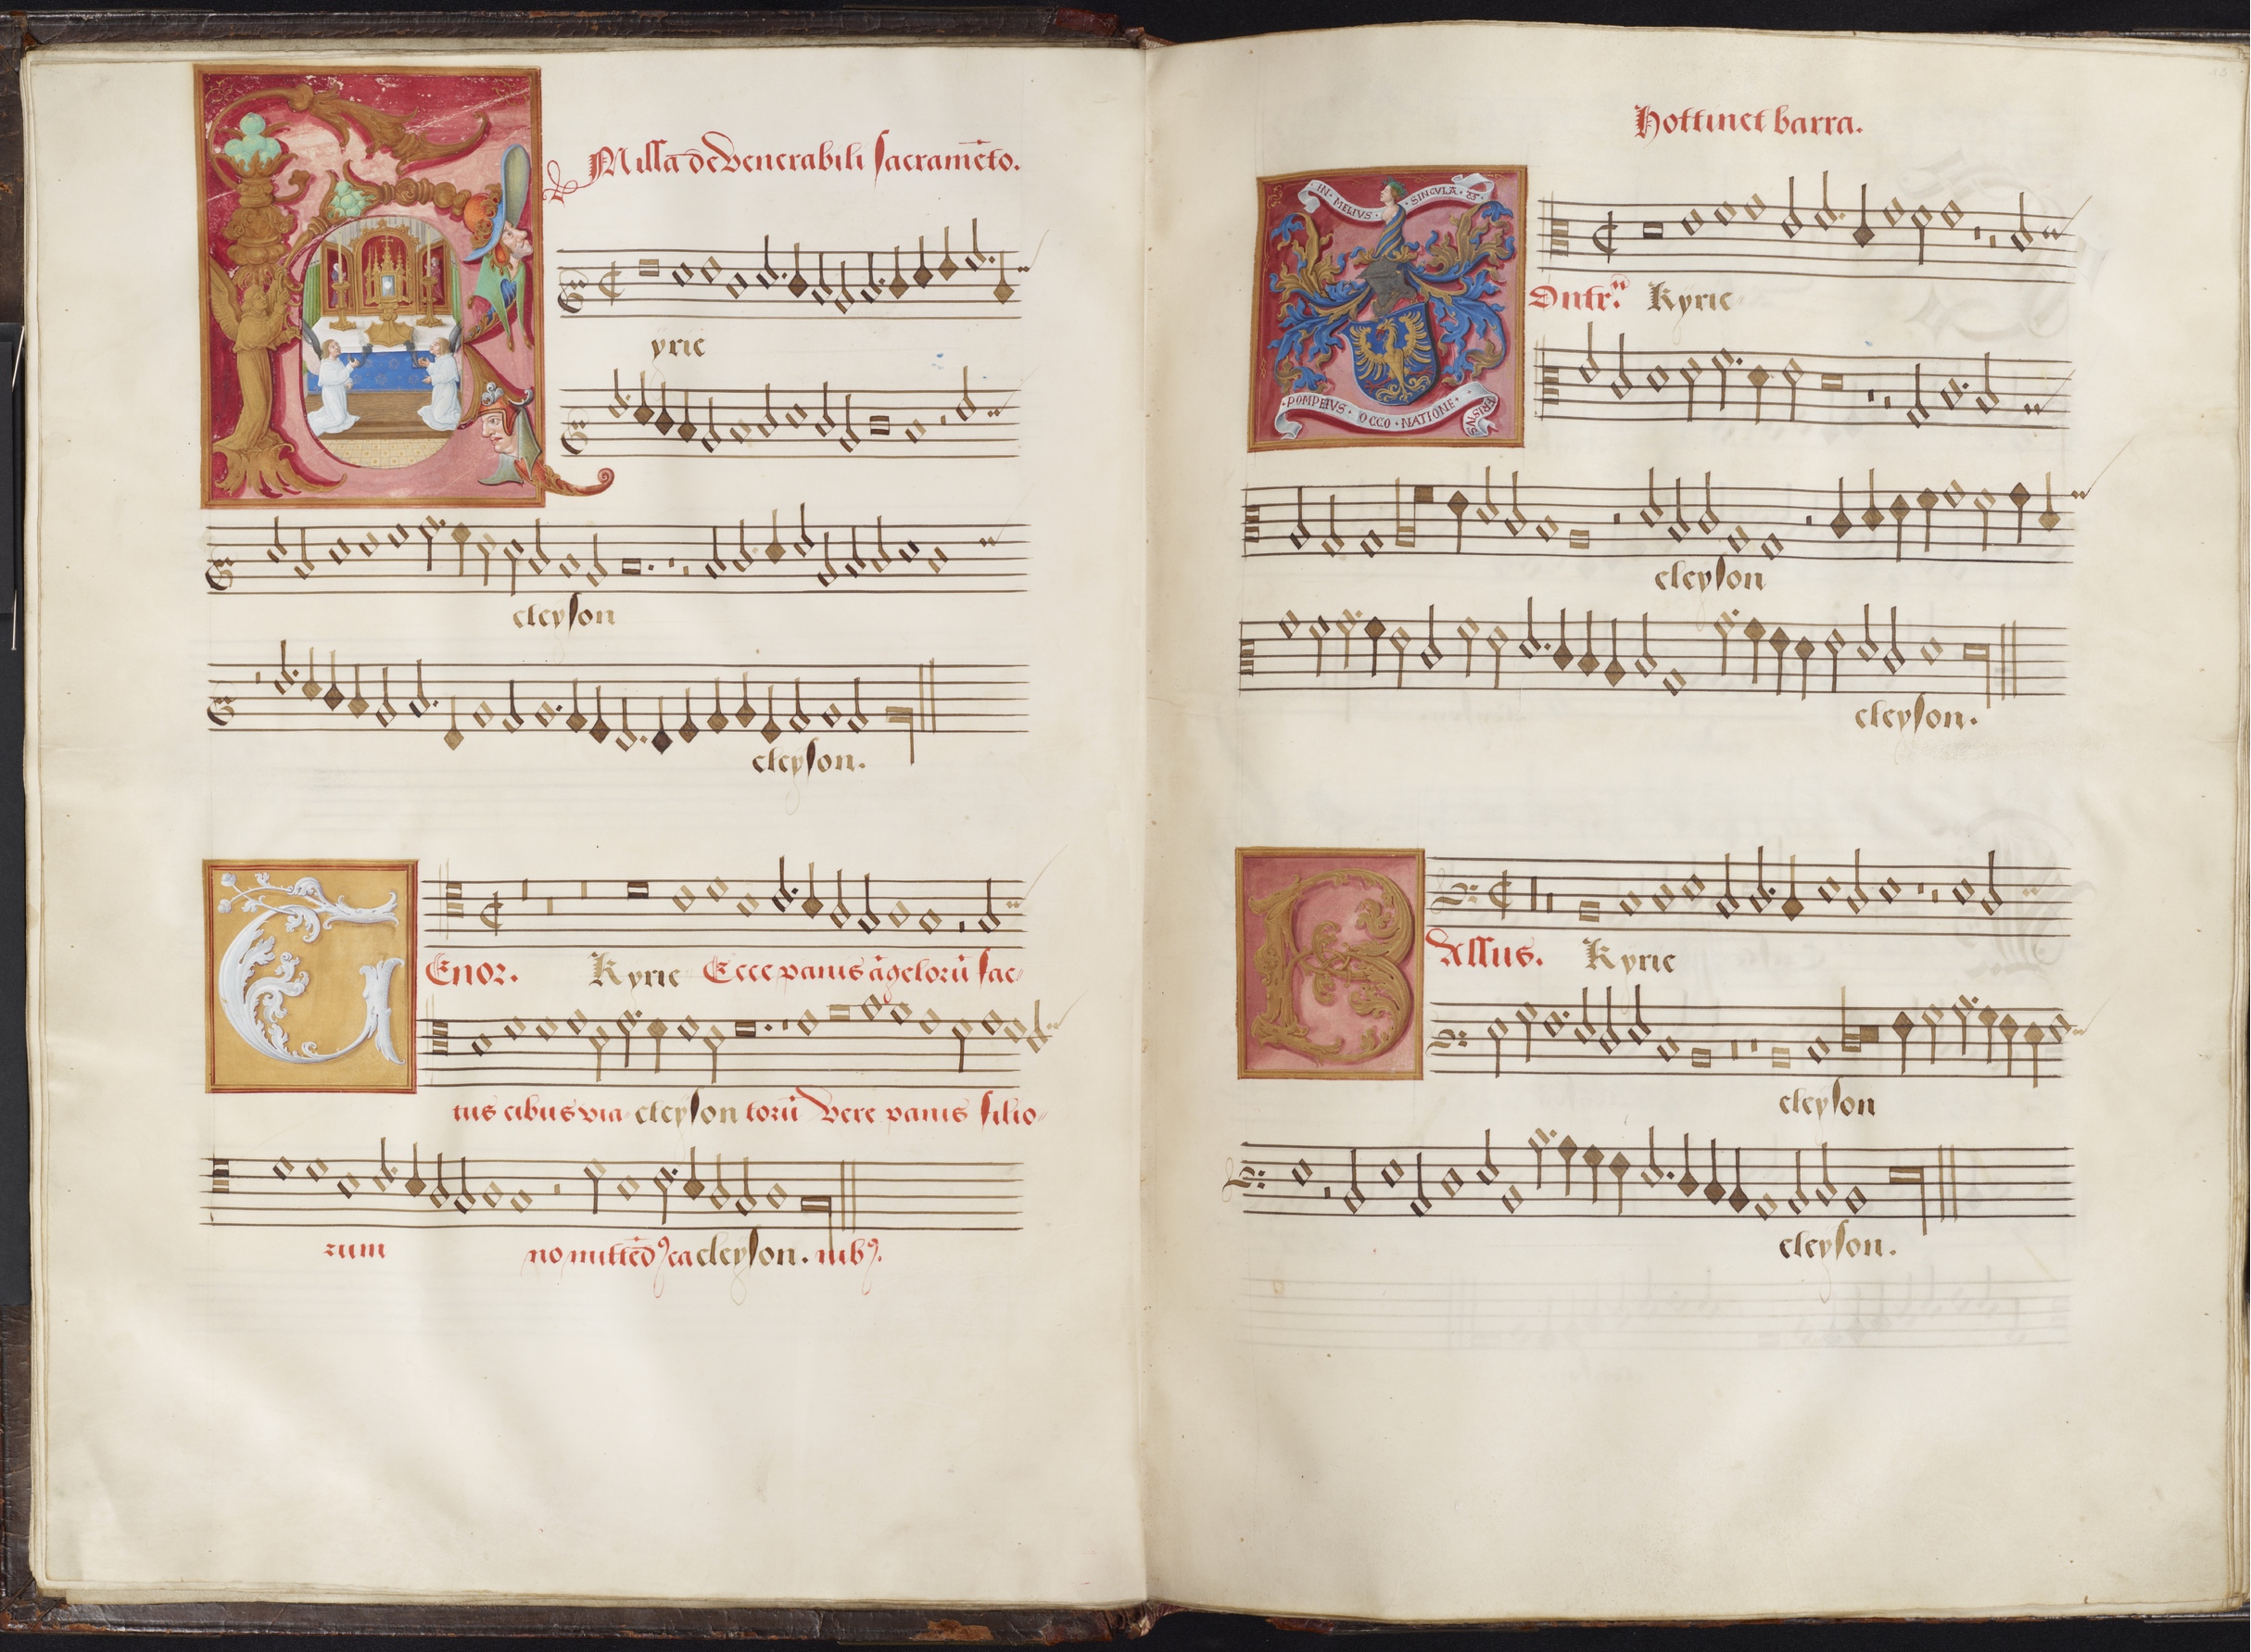 Missa de Venerabili sacramēto.
yrie
eleyson
eleyson.
Enor. Kyrie Ecce panis āgelorū sac-
tus cibus via eleyson torū Vere panis filio-
rum no mittēdꝰ ca eleyson. nibꝰ.
hottinet barra.
IN · MELIVS · SINGVLA ·
· POMPEIVS · OCCO · NATIONE · FRISIVS
Ontrᵃ. Kyrie
eleyson
eleyson.
B
Assus. Kyrie
eleyson
eleyson.